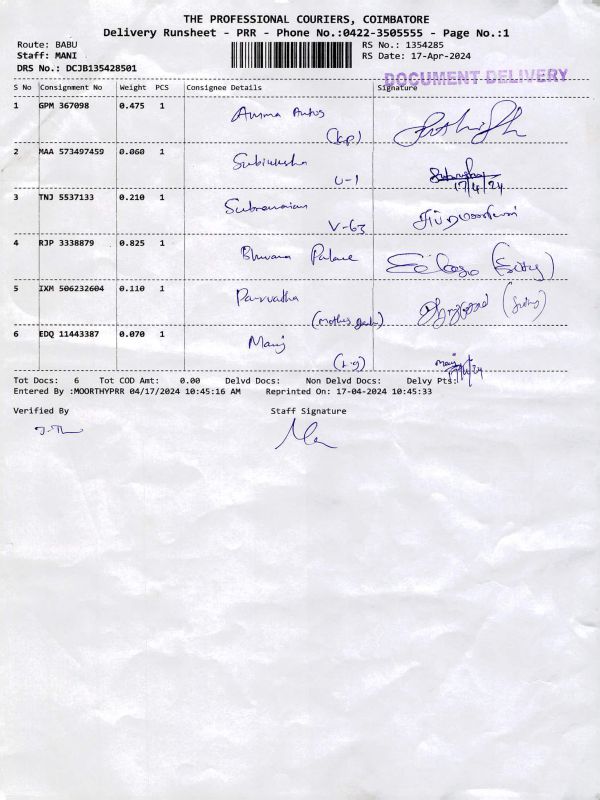 THE PROFESSIONAL COURIERS, COIMBATORE
Delivery Runsheet - PRR - Phone No.:0422-3505555 - Page No.:1
Route: BABU RS No.: 1354285
Staff: MANI RS Date: 17-Apr-2024
DRS No.: DCJB135428501
DOCUMENT DELIVERY
S No Consignment No Weight PCS Consignee Details Signature
1 GPM 367098 0.475 1 Amma Autos
(kp)
2 MAA 573497459 0.060 1
U-1 17/4/24
3 TNJ 5537133 0.210 1 Subramanian
V-63
4 RJP 3338879 0.825 1 Bhuvana Palace
5 IXM 506232604 0.110 1 Parvatha
6 EDQ 11443387 0.070 1 Manj
Tot Docs: 6 Tot COD Amt: 0.00 Delvd Docs: Non Delvd Docs: Delvy Pts:
Entered By :MOORTHYPRR 04/17/2024 10:45:16 AM Reprinted On: 17-04-2024 10:45:33
Verified By Staff Signature